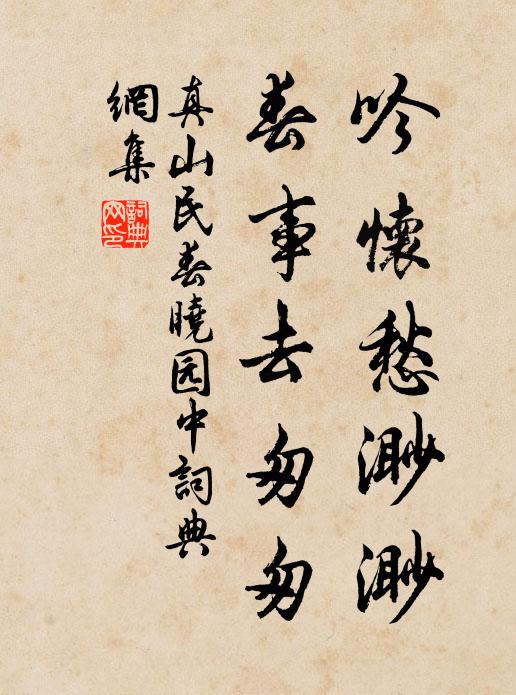 吟懷愁渺渺
春事去匆匆
真山民春曉园中詞典
網集
詞典網印